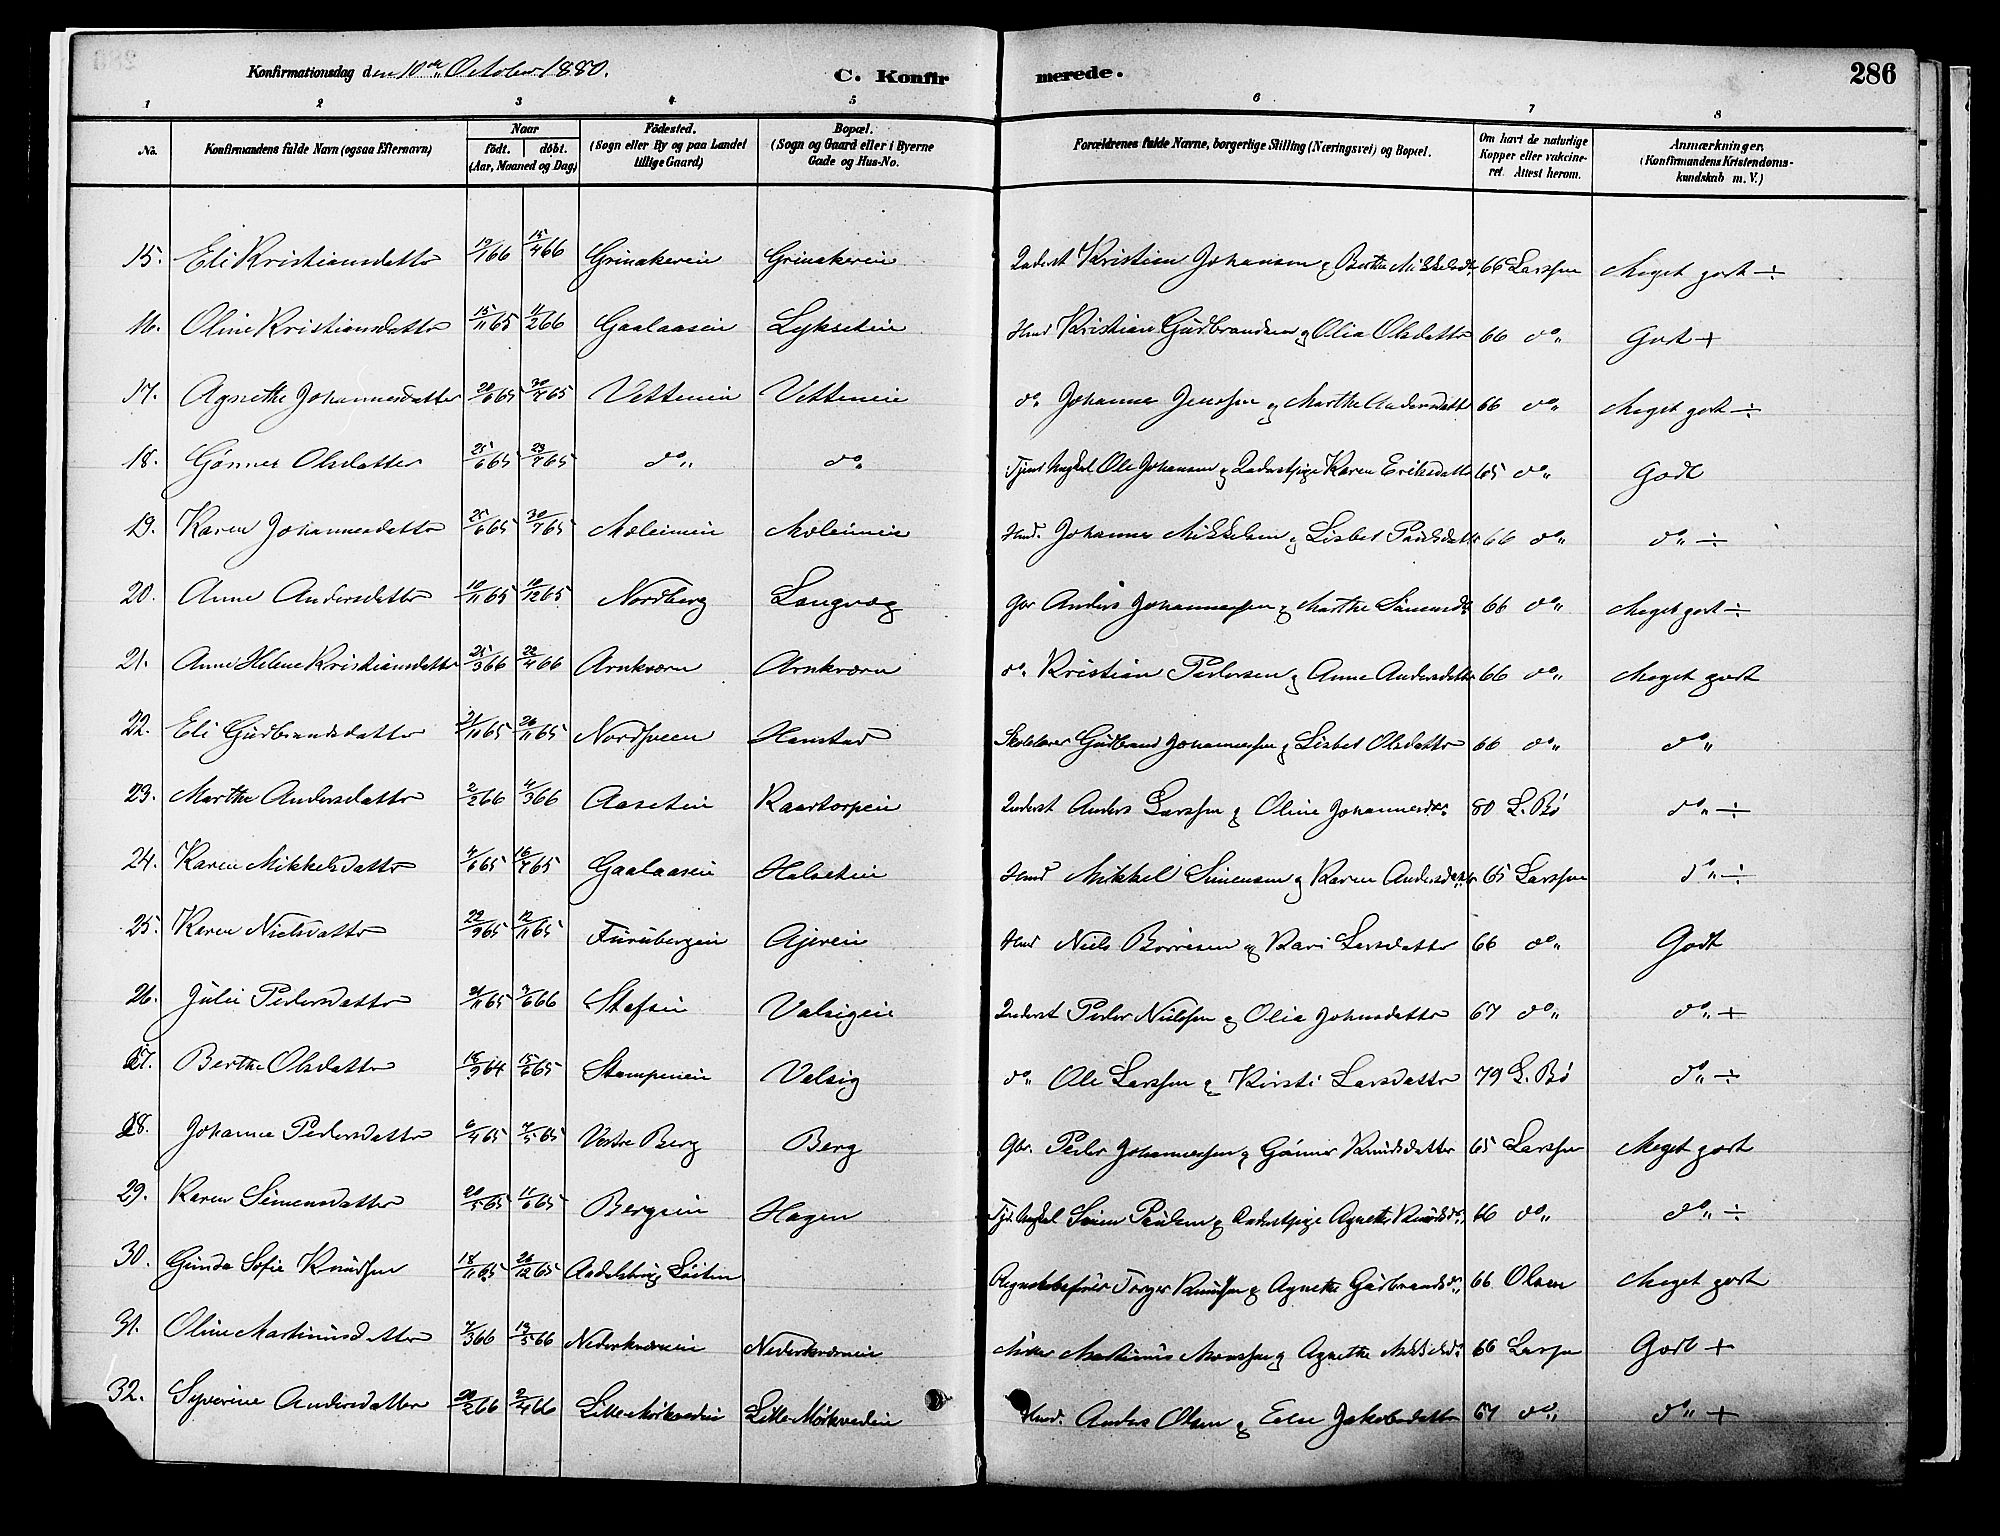 Konfirmationsdag den 10de October 1880.
C. Konfirmerede.
286
1 2 3 4 5 6 7 8
No. Konfirmandens fulde Navn (ogsaa Efternavn) Naar födt. döbt. (Aar, Maaned og Dag) Födested. (Sogn eller By og paa Landet tillige Gaard) Bopæl. (Sogn og Gaard eller i Byerne Gade og Hus-No. Forældrenes fulde Navne, borgerlige Stilling (Næringsvei) og Bopæl. Om havt de naturlige Kopper eller vakcineret. Attest herom. Anmærkninger. (Konfirmandens Kristendomskundskab m. V.)
15. Eli Kristiansdatter 15/4 66 Grinakereie Grinakereie Inderst Kristian Johansen & Berthe Mikkelsdt. 66 Larssen Meget godt ÷
16. Oline Kristiansdatter 15/11 65 11/2 66 Gaalaaseie Lykseteie Hmd Kristian Gudbrandsen & Olia Olsdatter 66 do Godt +
17. Agnethe Johannesdatter 20/6 65 30/7 65 Vetteneie Vetteneie do Johannes Jenssen & Marthe Andersdatt 66 do Meget godt ÷
18. Gönner Olsdatter 25/6 65 23/7 65 do do Ole Johansen & Karen Eriksdatter 65 do Godt
19. Karen Johannesdatter 25/6 65 30/7 65 Moleineie Moleineie Hmd. Johannes Mikkelsen & Lisbet Paulsdatt 66 do do ÷
20. Anne Andersdatter 10/11 65 10/12 65 Nordberg Langvog Gbr Anders Johannessen & Marthe Simensdt 66 do Meget godt ÷
21. Anne Helene Kristiansdatter 25/3 66 22/4 66 Arnkværn Arnkværn do Kristian Pedersen & Anne Andersdatter 66 do Meget godt
22. Eli Gudbrandsdatter 21/10 65 26/11 65 Nordsveen Hamstad Skolelærer Gudbrand Johannessen & Lisbet Olsdatter 66 do do
23. Marthe Andersdatter 2/2 66 4/3 66 Aaseteie Kaartorpeie Inderst Anders Larssen & Oline Johannesdr. 80 L. Bö do ÷
24. Karen Mikkelsdatter 4/6 65 16/7 65 Gaalaaseie Halseteie Hmd Mikkel Simensen & Karen Andersdatter 65 Larssen do ÷
25. Karen Nielsdatter 22/9 65 12/11 65 Furubergeie Ajereie Hmd Niels Borresen & Kari Larsdatter 66 do Godt
26. Julie Pedersdatter 21/11 65 3/6 66 Stafsie Valsigeie Inderst Peder Nielsen & Olia Johnsdatter 67 do do +
27. Berthe Olsdatter 18/9 64 15/6 65 Stampeneie Valsig do Ole Larssen & Kirsti Larsdatter 79 L. Bö do ÷
28. Johanne Pedersdatter 6/4 65 7/5 65 Vestre Berg Berg Gbr. Peder Johannessen & Gönner Knudsdatter 65 Larssen Meget godt
29. Karen Simensdatter 20/5 65 11/6 65 Bergseie Hagen Simen Paulsen & Agnethe Knudsdr. 66 do do ÷
30. Gunda Sofie Knudsen 18/11 65 26/12 65 Aadelsbrug Löiten Torger Knudsen & Agnethe Gudbrandsdr. 66 Olsen Meget godt
31. Oline Martinusdatter 7/3 66 13/5 66 Nederkværneie Nederkværneie Martinus Monssen & Agnethe Mikkelsdr. 66 Larssen Godt +
32. Syverine Andersdatter 20/2 66 2/4 66 Lille Mörkvedeie Lille Mörkvedeie Hmd. Anders Olsen & Jakobsdatter 67 do do +